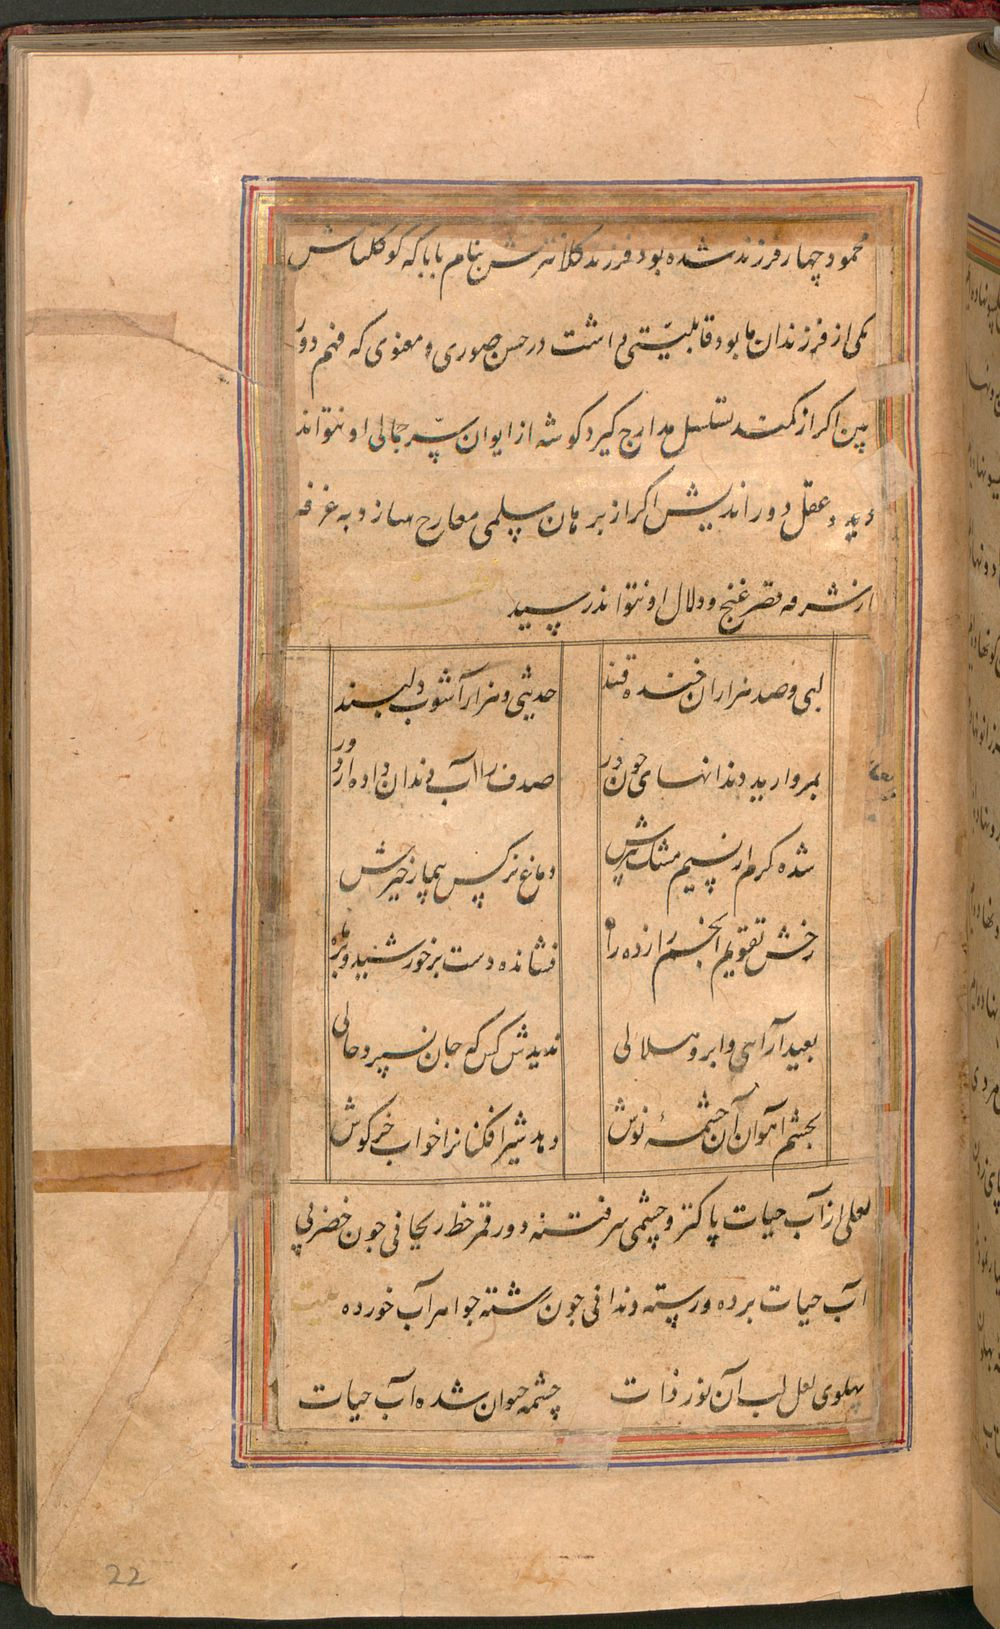 محمود چهار فرزند شده بود فرزند کلانترش بنام بابا که کوکلتاش
یکی از فرزندان ما بود قابلیّتی داشت در حسن صوری و معنوی که فهم دور
بین اگر از کمند تسلسل مدارج گیرد گوشه از ایوان سپهر جمالی او نتواند
دید و عقل دور اندیش اگر از برهان سلمی معارج سازد به غرفه
از شرفه قصر غنج و دلال او نتواند رسید نظم
لبی و صد هزاران خنده قند حدیثی و هزار آشوب دلبند
بمروارید دندانهای چون در صدف را آب دندان داده از دور
شده گرم از نسیم مشک بیزش دماغ نرگس بیمار خیزش
رخش تقویم انجم را زده راه فشانده دست بر خورشید و بر ماه
بعید آرائی و ابرو هلالی ندیدش کس که جان نسپرد حالی
بچشم آهوان آن چشمهٔ نوش دهد شیرافکنانرا خواب خرگوش
لعلی از آب حیات پاکتر و چشمی سر فتنه دور قمر خط ریحانی چون خضر پی
آب حیات برده و رسته دندانی چون رشته جواهر آب خورده بیت
پهلوی لعل لب آن نور ذات چشمه حیوان شده آب حیات
22